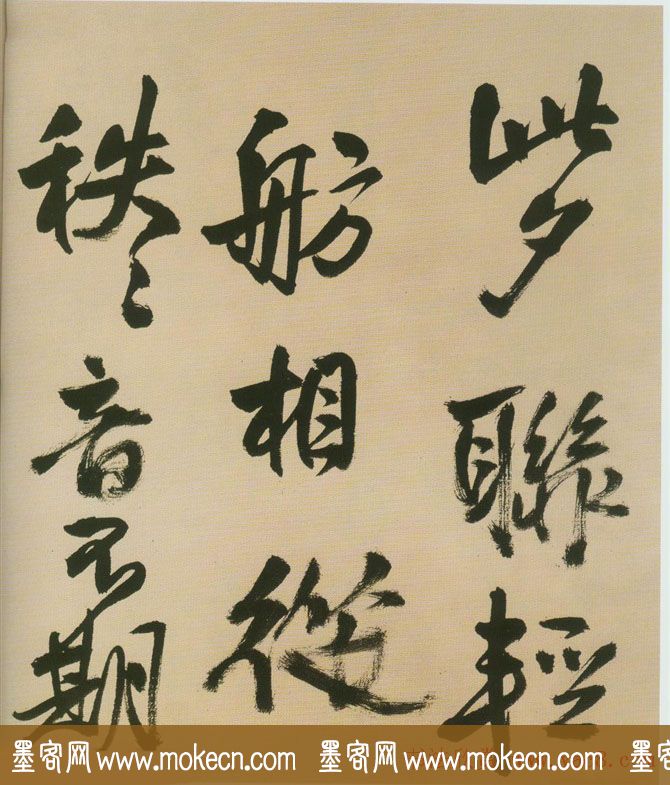 此夕聯輕
舫相從
秩〻音不期
墨客网 www.mokecn.com 墨客网 www.mokecn.com 墨客